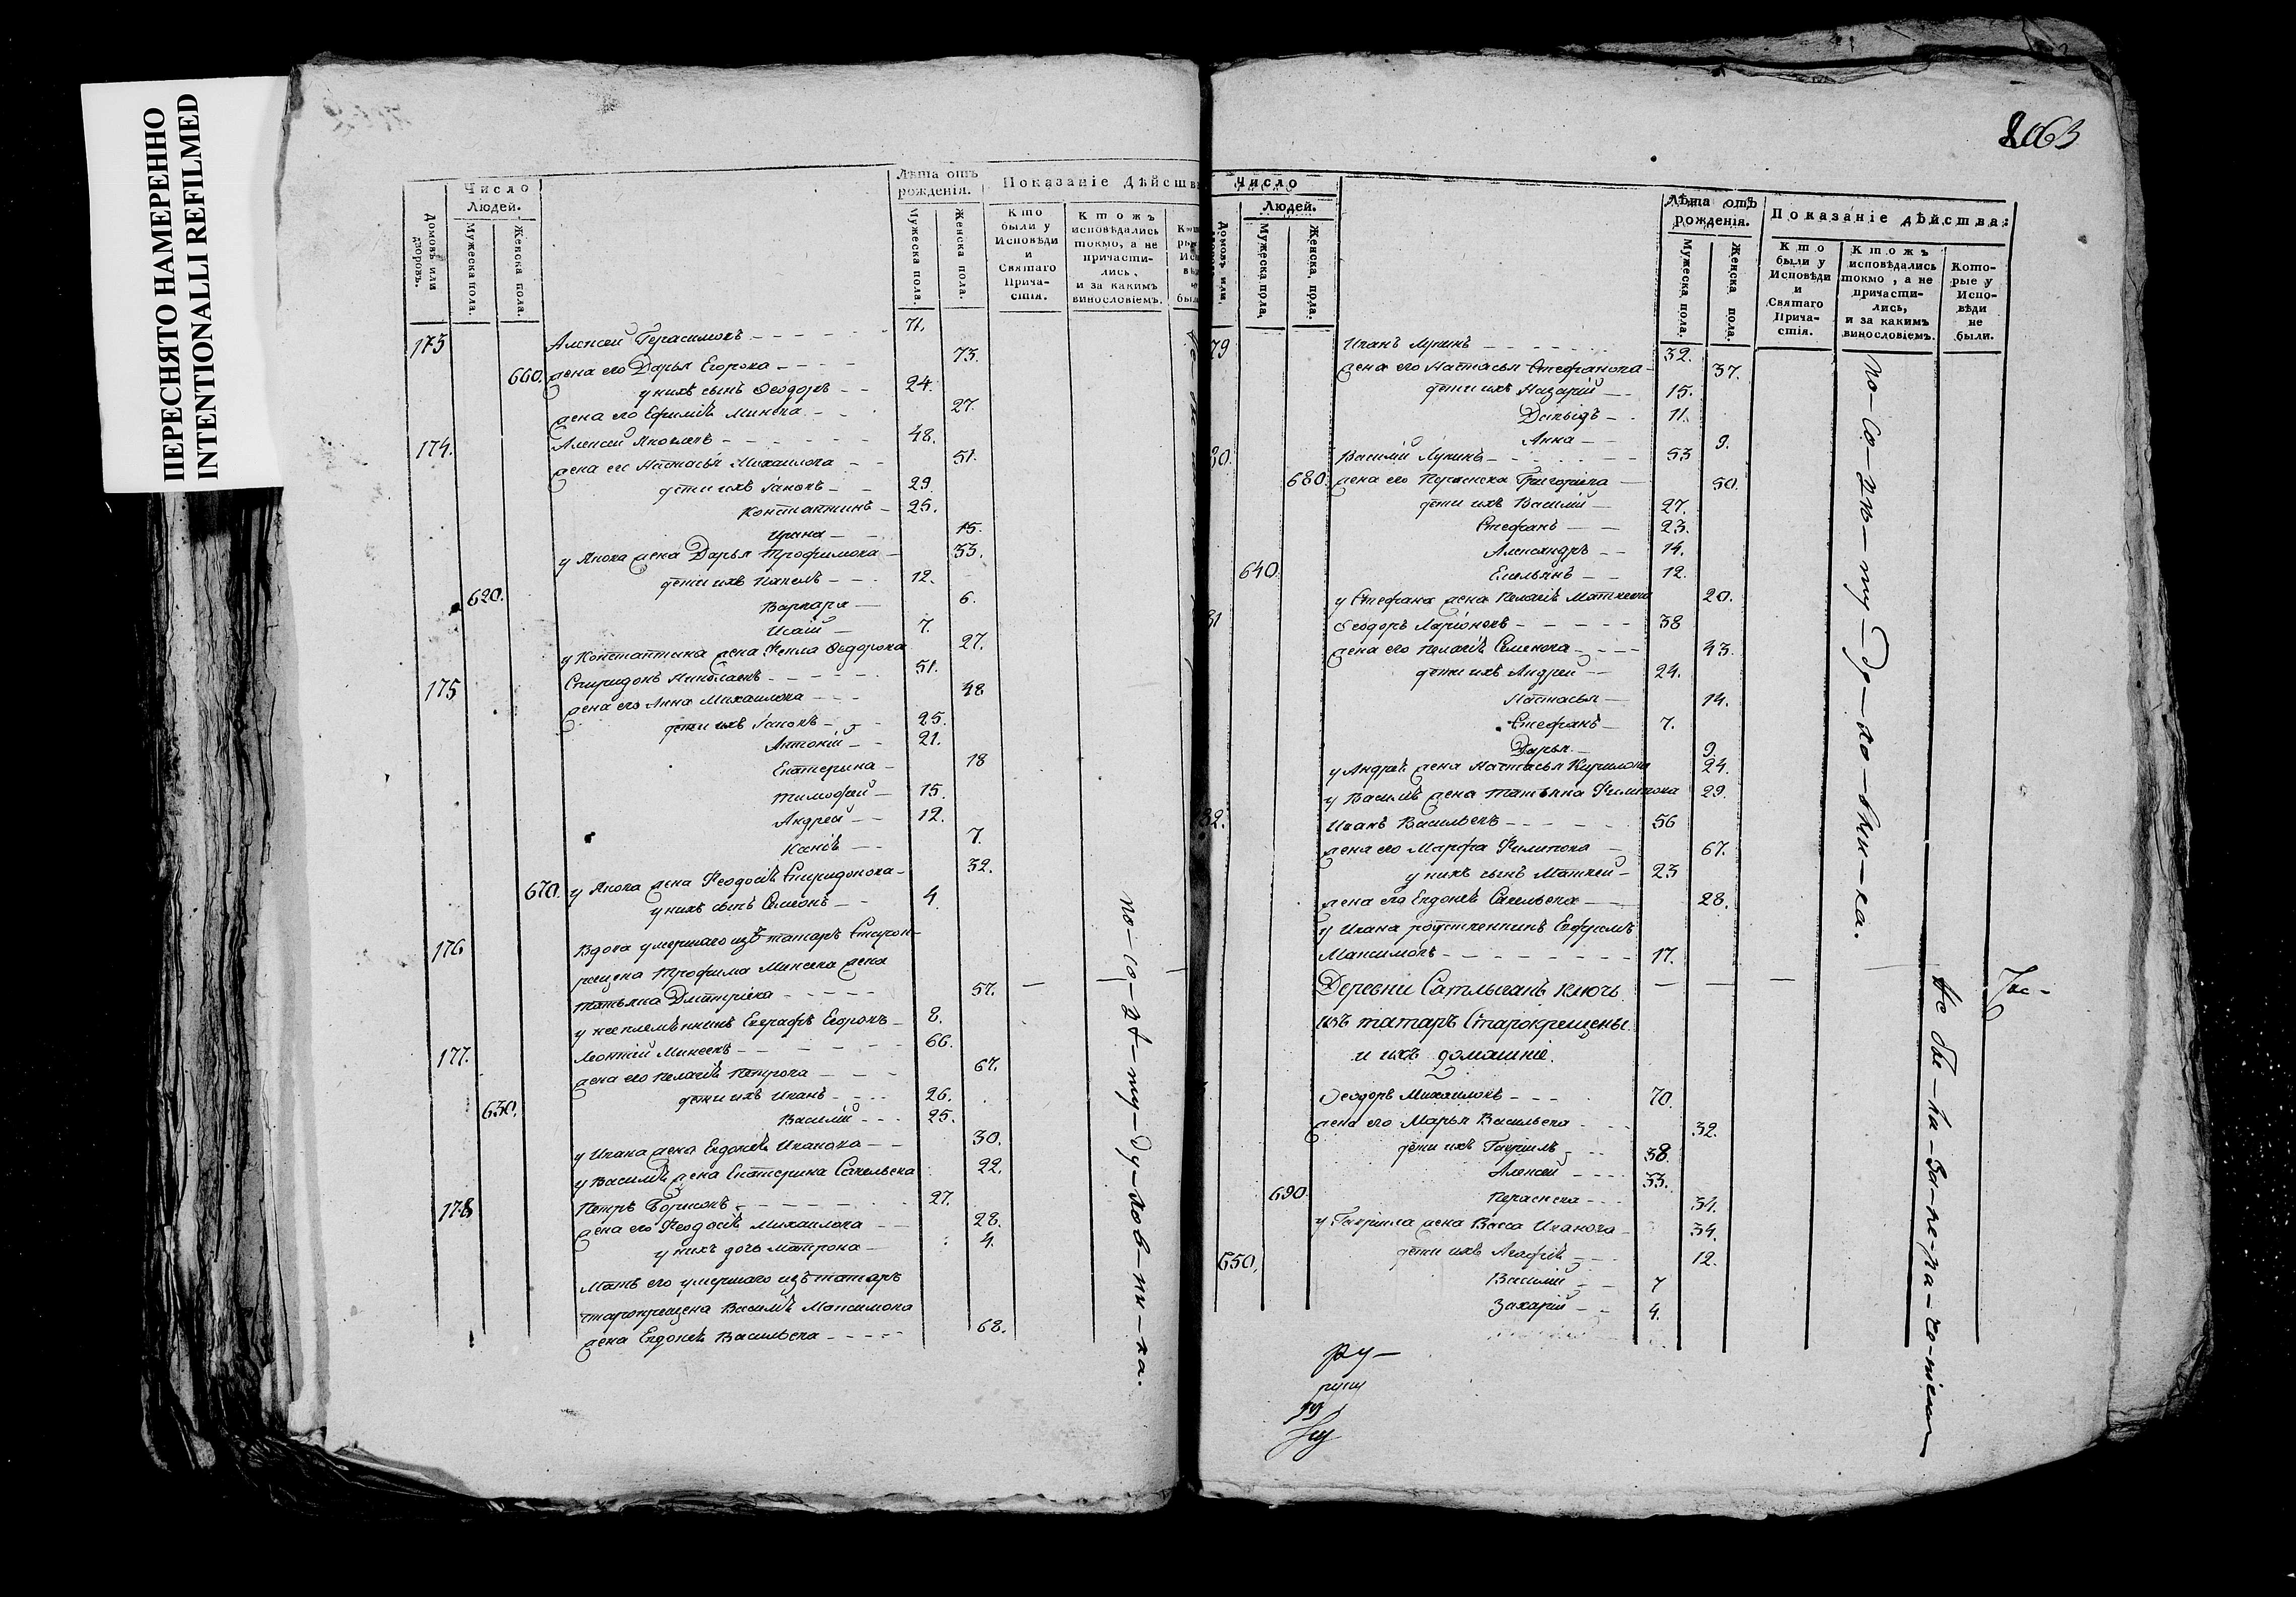 ПЕРЕСНЯТО НАМЕРЕННО
INTENTIONALLI REFILMED
Число
Людей.
Домовъ или дворовъ.
Мужеска пола.
Женска пола.
Лѣта отъ рожденія.
Мужеска пола.
Женска пола.
Показаніе дѣйств
Кто были у Исповѣди и Святаго Причастія.
Ктожъ исповѣдались токмо, а не причастились, и за какимъ винословіемъ.
173 Алексей Герасимовъ 71.
660. жена его Дарья Егорова 73.
у нихъ сынъ Ѳеодоръ 24.
жена его Ефимія Минеева 27.
174. Алексей Яковлевъ 48.
жена его Настасья Михаилова 51.
дети ихъ Iаковъ 29.
Константинъ 25.
Ирина 15.
у Якова жена Дарья Трофимова 33.
дети ихъ Павелъ 12.
620. Варвара 6.
Исаій 7.
у Константина жена Ѳекла Ѳедорова 27.
175 Спиридонъ Николаевъ 51.
жена его Анна Михаилова 48
дети ихъ Iаковъ 25.
Антоній 21.
Екатерина 18
Тимофей 15.
Андрей 12.
7.
670. у Якова жена Ѳеодосія Спиридонова 32.
у нихъ сынъ Симеонъ 4.
176 Вдова умершаго изъ татаръ старок-
рещена Трофима Минеева жена
Татьяна Дмитріева 57.
у нее племянникъ Евграфъ Егоровъ 8.
177. Леонтій Минеевъ 66.
жена его Пелагія Петрова 67.
дети ихъ Иванъ 26.
630. Василій 25.
у Ивана жена Евдокія Иванова 30.
у Василія жена Екатерина Савельева 22.
178 Петръ Борисовъ 27.
жена его Ѳеодосія Михаилова 28.
у нихъ дочь Матрона 4.
Мать его умершаго изъ татаръ
старокрещена Василія Максимова
жена Евдокія Васильева 68.
по-со-вѣ-ту-ду-хов-ни-ка.
1063
Число
Людей.
Домовъ или
Мужеска пола.
Женска пола.
Лѣта отъ рожденія.
Мужеска пола.
Женска пола.
Показаніе дѣйства:
Кто были у Исповѣди и Святаго Причастія.
Ктожъ исповѣдались токмо, а не причастились, и за какимъ винословіемъ.
Которые у Исповѣди не были.
79 Иванъ Лукинъ 32.
жена его Настасья Стефанова 37.
дети ихъ Назарій 15.
Давыдъ 11.
Анна 9.
80. Василій Лукинъ 53
680. жена его Параскева Григорьева 50.
дети ихъ Василій 27.
Стефанъ 23.
Александръ 14.
640. Емельянъ 12.
у Стефана жена Пелагія Матвеева 20.
81 Ѳеодоръ Ларіоновъ 38
жена его Пелагія Семенова 43.
дети ихъ Андрей 24.
Настасья 14.
Стефанъ 7.
Дарья 9.
у Андрея жена Настасья Кирилова 24.
у Василія жена Татьяна Филипова 29.
82. Иванъ Васильевъ 56
жена его Марфа Филипова 67.
у нихъ сынъ Матвей 23
жена его Евдокія Савельева 28.
у Ивана родственникъ Ефремъ
Максимовъ 17.
Деревни Сатлыганъ ключь
изъ татаръ Старокрещены
и ихъ домашніе.
Ѳеодоръ Михаиловъ 70.
жена его Марья Васильева 32.
дети ихъ Гавріилъ 38
Алексей 33.
690. Параскева 31.
у Гавріила жена Васса Иванова 34.
650. дети ихъ Агафія 12.
Василій 7
Захарій 4.
по-со-вѣ-ту-ду-хо-вни-ка.